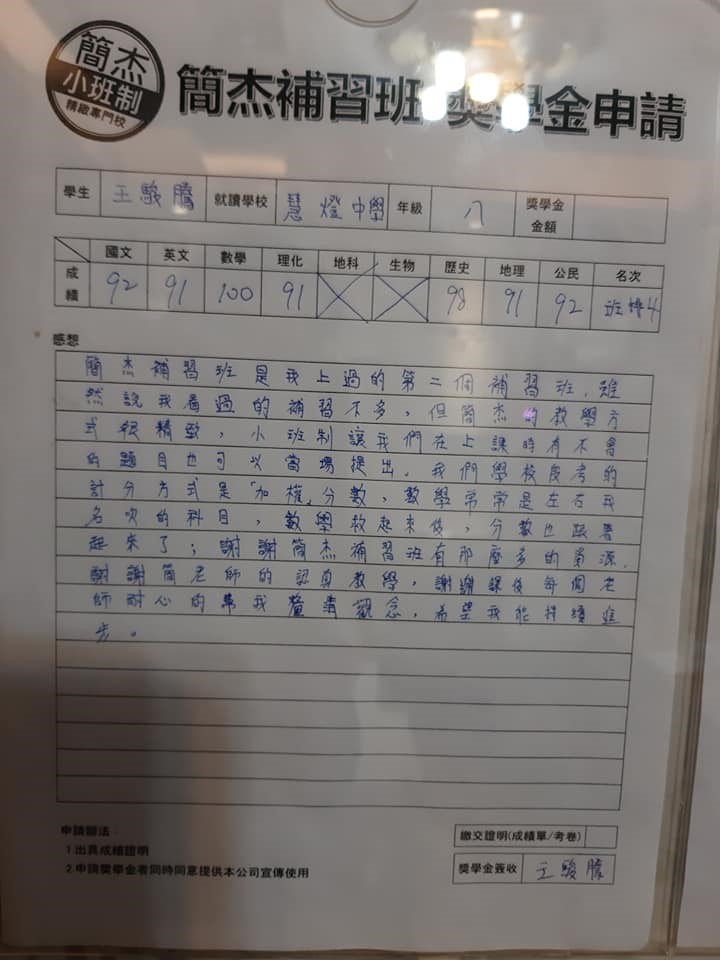 簡杰
小班制
精緻專門校
簡杰補習班 獎學金申請
學生 王駿騰 就讀學校 慧燈中學 年級 八 獎學金金額
國文 英文 數學 理化 地科 生物 歷史 地理 公民 名次
成績 92 91 100 91 98 91 92 班排4
感想
簡杰補習班是我上過的第二個補習班,雖
然說我看過的補習不多,但簡杰的教學方
式很精緻,小班制讓我們在上課時有不會
的題目也可以當場提出。我們學校段考的
計分方式是「加權」分數,數學常常是左右我
名次的科目,數學救起來後,分數也跟著
起來了;謝謝簡杰補習班有那麼多的資源,
謝謝簡老師的認真教學,謝謝課後每個老
師耐心的幫我釐清觀念,希望我能持續進
步。
申請辦法:
1.出具成績證明
2.申請獎學金者同時同意提供本公司宣傳使用
繳交證明(成績單/考卷)
獎學金簽收 王駿騰